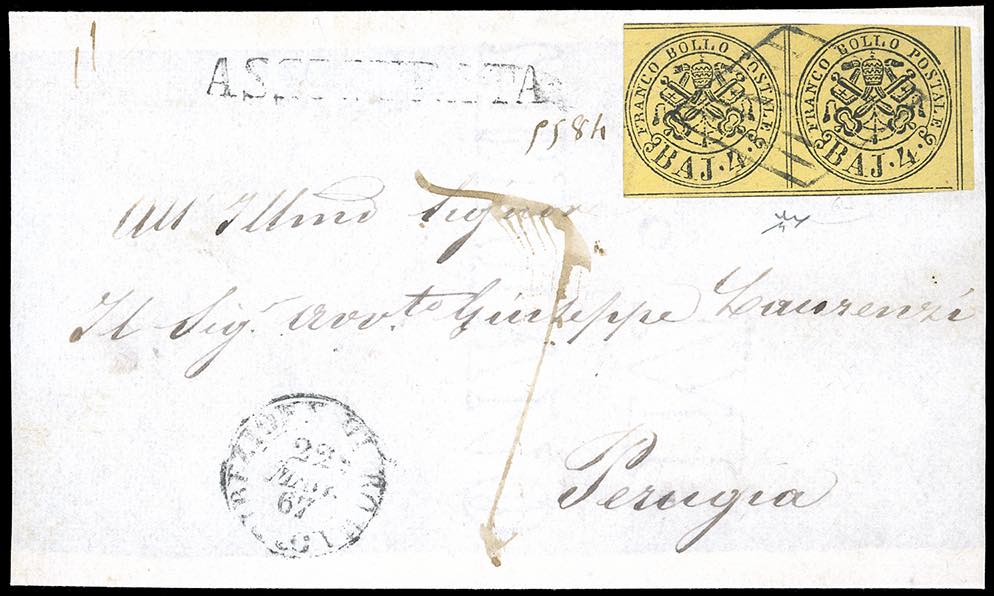 ASSICURATA
FRANCO BOLLO POSTALE
BAJ. 4.
FRANCO BOLLO POSTALE
BAJ. 4.
All' Illmo Signore
Il Sigr. Avvto. Giuseppe Laurenzi
Perugia
DIREZIONE DI ROMA
22
MAR.
67